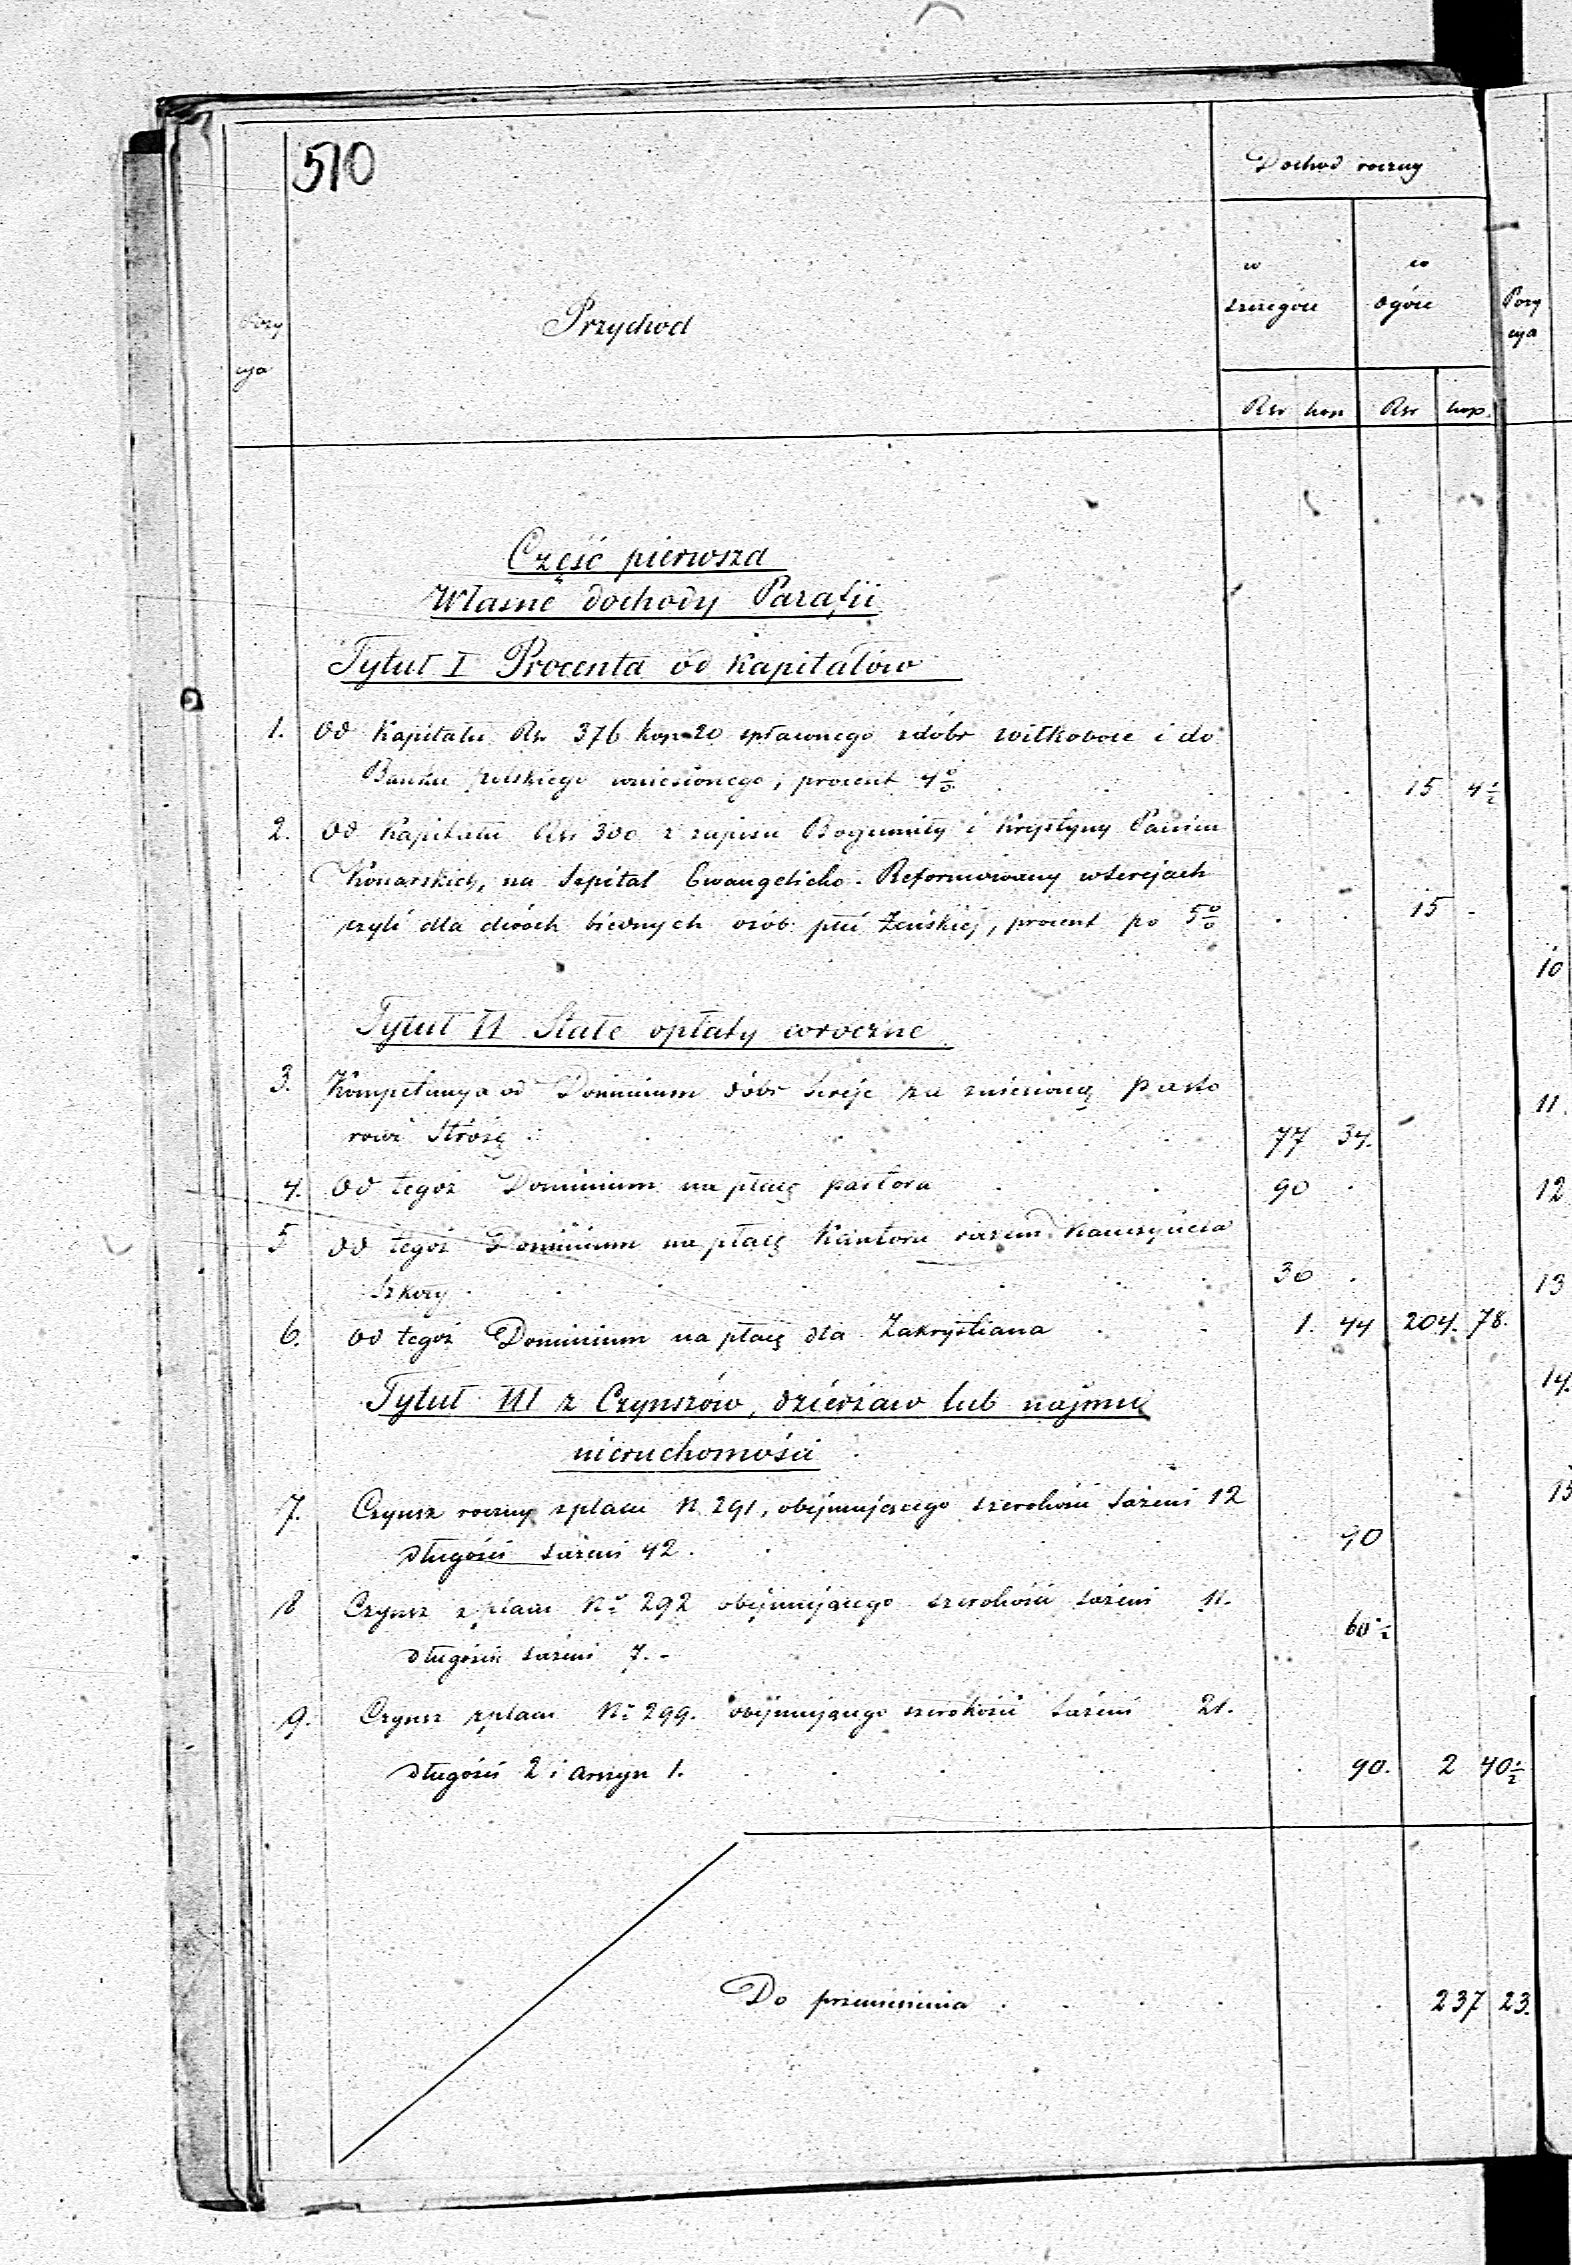 510
Dochod roczny
w
szczególe
w
ogóle
Pozy
cya
Przychod
Pozy
cya
Rsr kop Rsr kop.
Część pierwsza
Własne dochody Parafii
Tytuł I Procenta od Kapitałów
1. Od Kapitału Rsr 376 kop 20 spławnego z dóbr i do
Banku polskiego wniesionego, procent 4 0/0 15 4 1/2
2. Od Kapitału Rsr 300 z zapisu Bogumiły i Krystyny Panien
Konarskich, na Szpital Ewangelicko-Reformowany w Serejach
czyli dla dwóch biednych osób płci Żeńskiej, procent po 5 0/0 15 -
10
Tytuł II Stałe opłaty coroczne
3. Kompetencya od Dominium dóbr Sereje za zniesioną pasto 11.
rowi 77 34.
4. Od tegoż Dominium na płacę pastora 90 12
5 Od tegoż Dominium na płacę Kantora razem Nauczyciela
Szkoły 30 13
6. Od tegoż Dominium na płacę dla Zakrystiana 1. 44 204. 78.
14.
Tytuł III z Czynszów, dzierżaw lub najmu
nieruchomości
15
7. Czynsz roczny z placu N 291, obejmującego szerokości sażeni 12
długości sażeni 42. 90
8 Czynsz z placu No 292 obejmującego szerokości sażeni 11.
długości sażeni 7. - 60 1/2
9. Czynsz z placu No 299. obejmującego szerokości sażeni 21.
długości 2 i arszyn 1. 90. 2 40 1/2
Do przeniesienia 237 23.